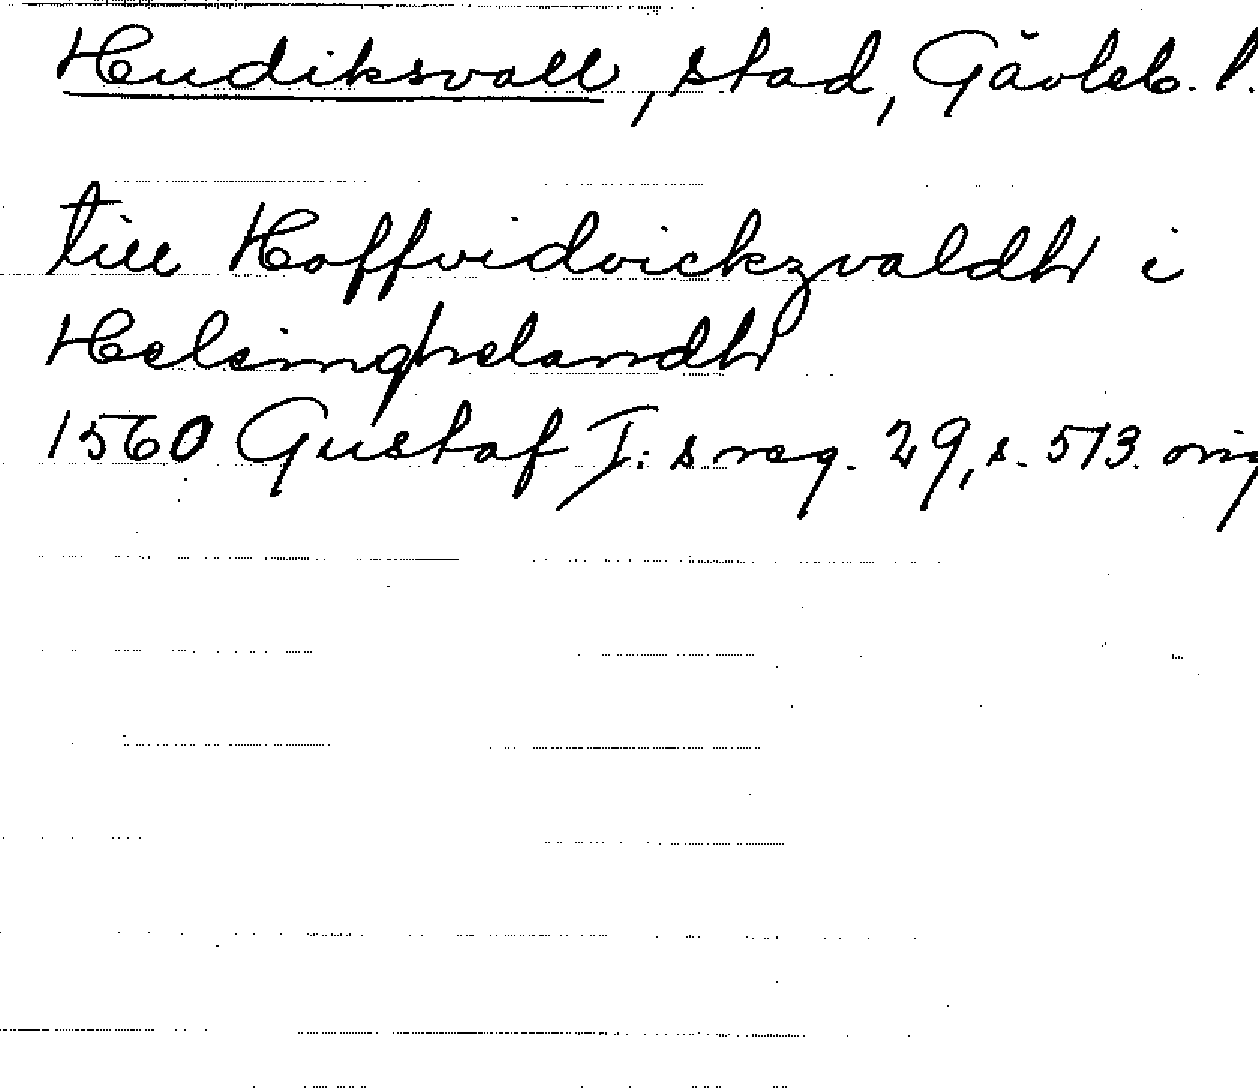 Hudiksvall, stad, Gävleb. l.
till Hoffvidvickzvaldh i
Helsinghelandh
1560 Gustaf I:s reg. 29, s. 513. orig